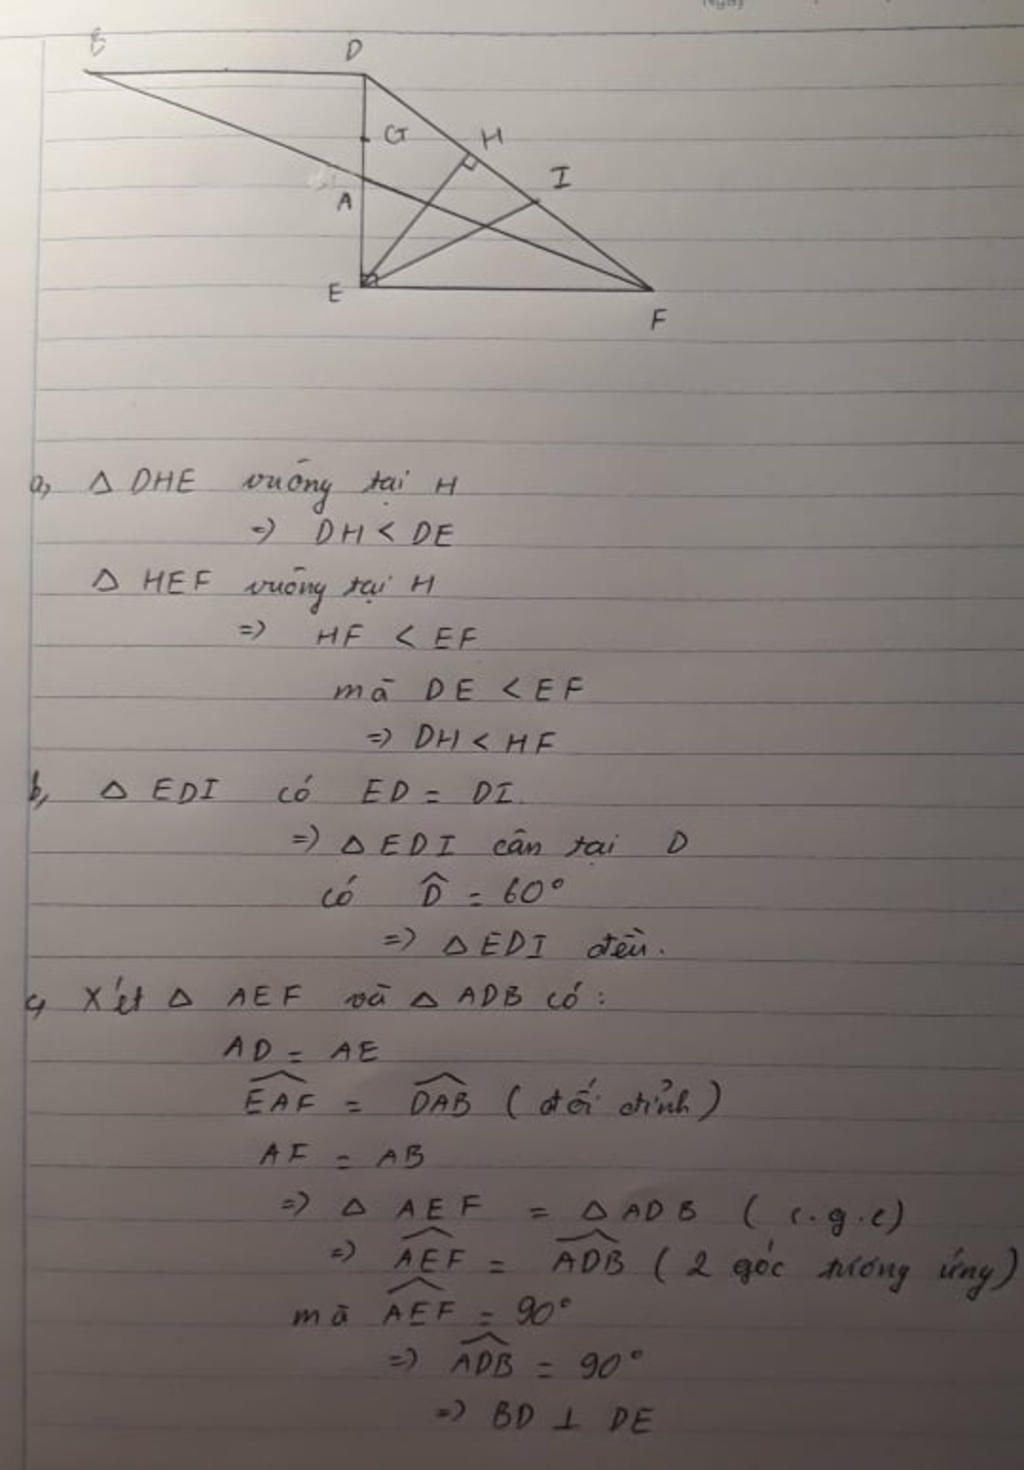 B
D
G
H
I
A
E
F
a, △ DHE vuông tại H
=> DH < DE
△ HEF vuông tại H
=> HF < EF
mà DE < EF
=> DH < HF
b, △ EDI có ED = DI.
=> △ EDI cân tại D
có D̂ = 60°
=> △ EDI đều.
c, Xét △ AEF và △ ADB có:
AD = AE
\widehat{EAF} = \widehat{DAB} (đối đỉnh)
AF = AB
=> △ AEF = △ ADB (c.g.c)
=> \widehat{AEF} = \widehat{ADB} (2 góc tương ứng)
mà \widehat{AEF} = 90°
=> \widehat{ADB} = 90°
=> BD ⊥ DE